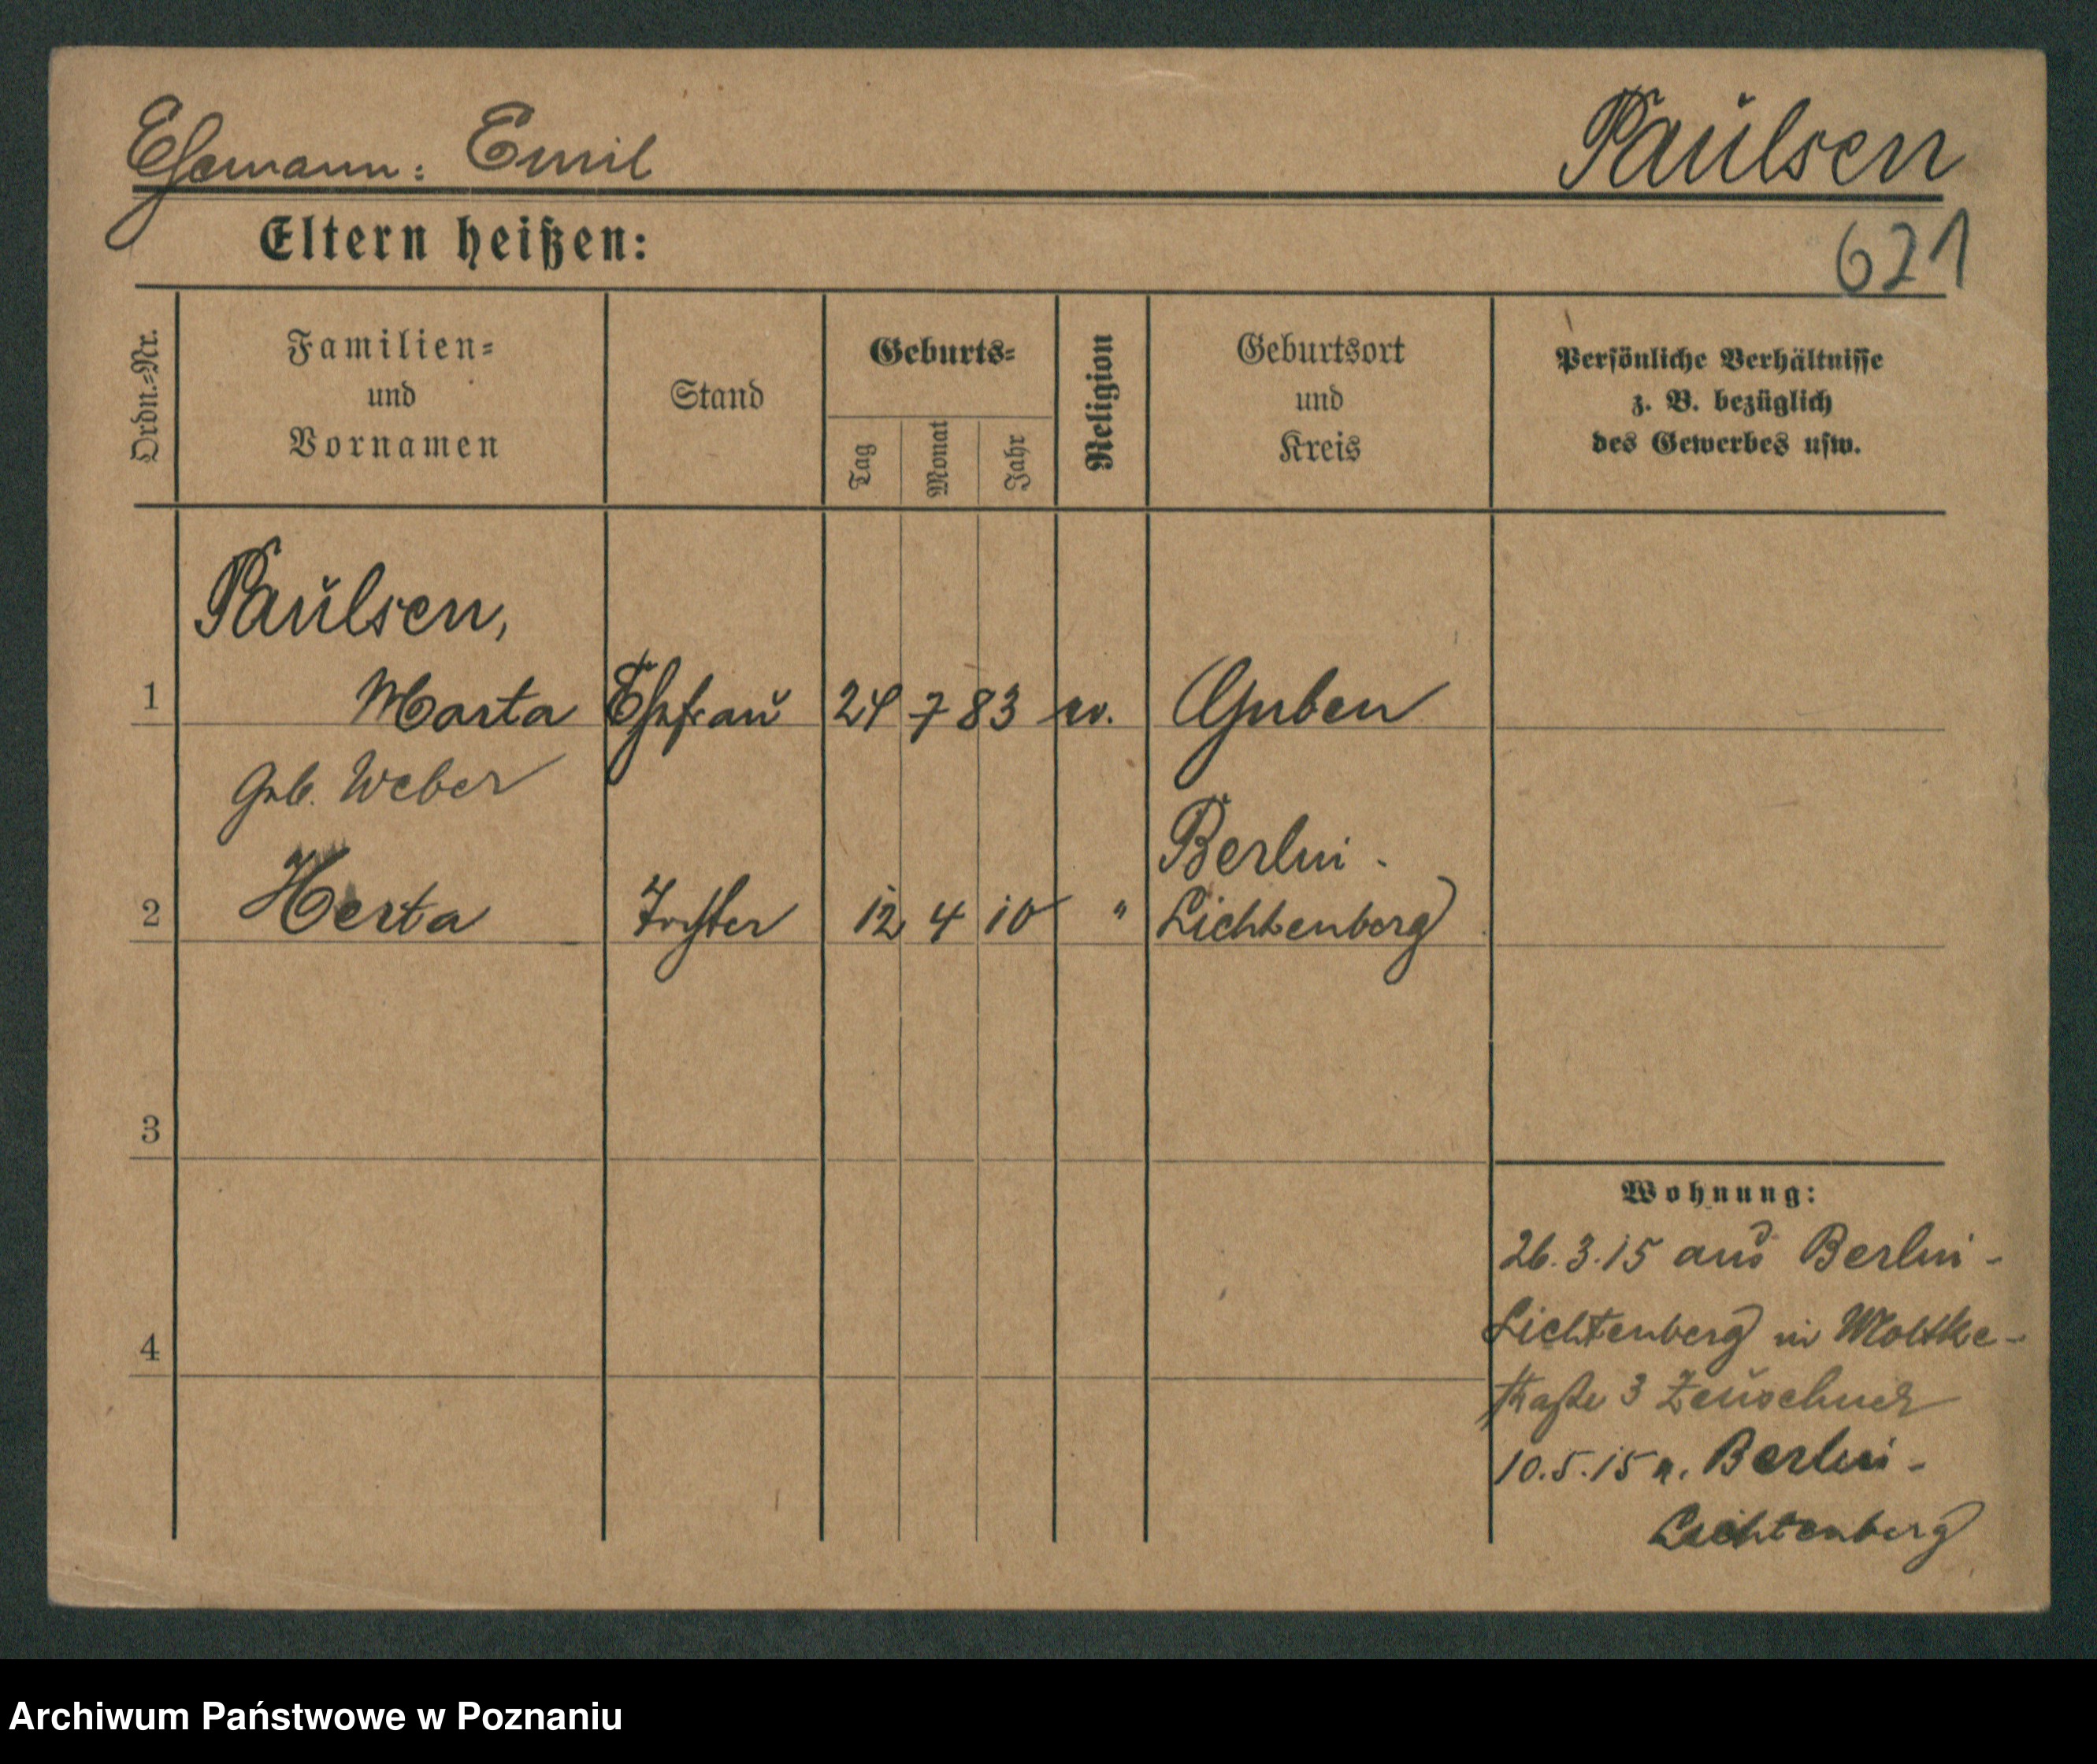 Ehemann: Emil
Paulsen
Eltern heißen:
621
Ordn.-Nr.
Familien-
und
Vornamen
Stand
Geburts-
Tag
Monat
Jahr
Religion
Geburtsort
und
Kreis
Persönliche Verhältnisse
z. B. bezüglich
des Gewerbes usw.
Paulsen,
1 Marta Ehefrau 24 7 83 ev. Guben
geb. Weber
Berlin-
2 Herta Tochter 12 4 10 " Lichtenberg
3
4
Wohnung:
26.3.15 aus Berlin-
Lichtenberg in Moltke-
straße 3 Zeuschner
10.5.15 n. Berlin-
Lichtenberg
Archiwum Państwowe w Poznaniu